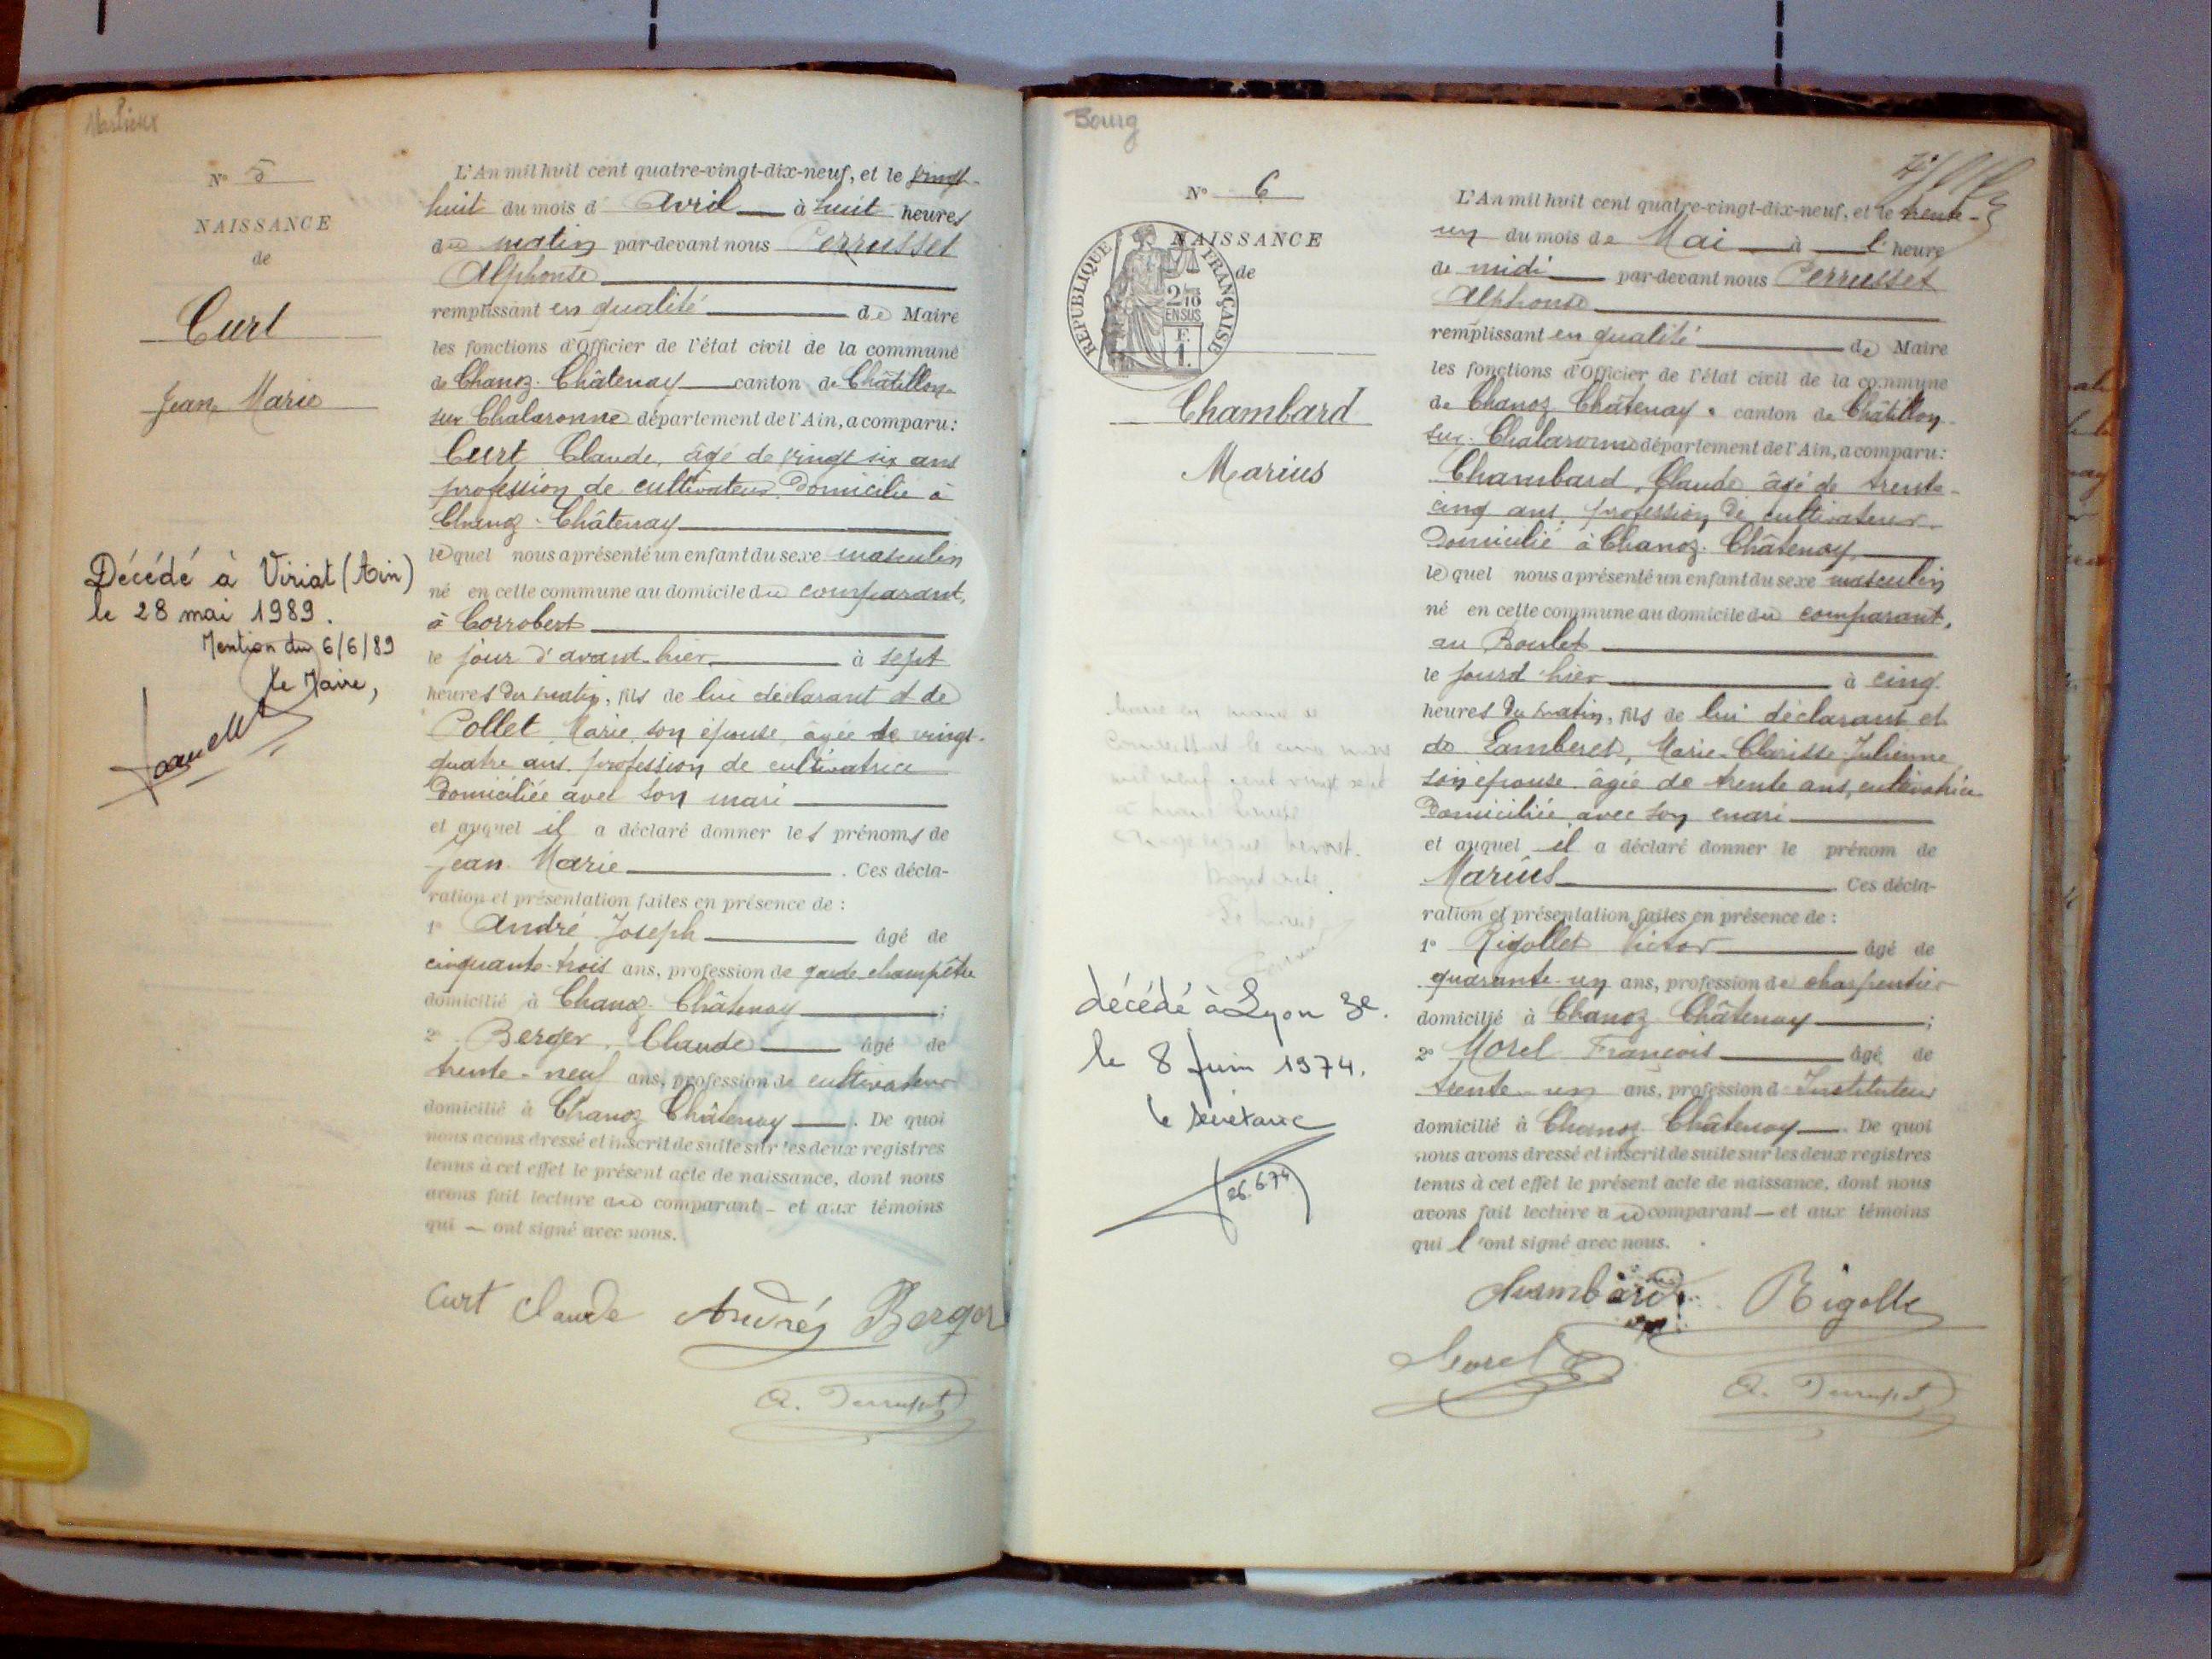 N° 5
NAISSANCE
de
Curt
Jean Marie
Décédé à Viriat (Ain)
le 28 mai 1989.
Mention du 6/6/89
le Maire,
L'An mil huit cent quatre-vingt-dix-neuf, et le vingt-
huit du mois d'Avril à huit heures
du matin par-devant nous Perrusset
Alphonse
remplissant en qualité de Maire
les fonctions d'Officier de l'état civil de la commune
de Chanoz-Châtenay canton de Châtillon-
sur Chalaronne département de l'Ain, a comparu:
Curt Claude, âgé de vingt six ans
profession de cultivateur, Domicilié à
Chanoz-Châtenay
lequel nous a présenté un enfant du sexe masculin
né en cette commune au domicile du comparant,
à Corrobert
le jour d'avant-hier à sept
heures du matin, fils de lui déclarant et de
Pollet Marie son épouse, âgée de vingt-
quatre ans, profession de cultivatrice
Domiciliée avec son mari
et auquel il a déclaré donner les prénoms de
Jean Marie. Ces décla-
ration et présentation faites en présence de :
1° André Joseph âgé de
cinquante-trois ans, profession de garde champêtre
domicilié à Chanoz-Châtenay ;
2° Berger, Claude âgé de
trente-neuf ans, profession de cultivateur
domicilié à Chanoz Châtenay. De quoi
nous avons dressé et inscrit de suite sur les deux registres
tenus à cet effet le présent acte de naissance, dont nous
avons fait lecture au comparant - et aux témoins
qui - ont signé avec nous.
Curt Claude Andrés Berger
A. Perrusset
Bourg
N° 6
NAISSANCE
de
REPUBLIQUE FRANÇAISE
2/10
EN SUS
Chambard
Marius
décédé à Lyon 3e.
le 8 Juin 1974.
le secrétaire
26.6.74
L'An mil huit cent quatre-vingt-dix-neuf, et le trente-
un du mois de Mai à l'heure
de midi par-devant nous Perrusset
Alphonse
remplissant en qualité de Maire
les fonctions d'Officier de l'état civil de la commune
de Chanoz Châtenay canton de Châtillon-
sur-Chalaronne département de l'Ain, a comparu:
Chambard, Claude âgé de trente-
cinq ans, profession de cultivateur
Domicilié à Chanoz-Châtenay
lequel nous a présenté un enfant du sexe masculin
né en cette commune au domicile du comparant,
au Boulet
le jourd'hier à cinq
heures du matin, fils de lui déclarant et
de Lamberet, Marie-Clarisse-Julienne
son épouse, âgée de trente ans, cultivatrice
Domiciliée avec son mari
et auquel il a déclaré donner le prénom de
Marius Ces décla-
ration et présentation faites en présence de :
1° Rigollet Victor âgé de
quarante-un ans, profession de charpentier
domicilié à Chanoz-Châtenay ;
2° Morel François âgé de
trente-un ans, profession d'Instituteur
domicilié à Chanoz-Châtenay. De quoi
nous avons dressé et inscrit de suite sur les deux registres
tenus à cet effet le présent acte de naissance, dont nous
avons fait lecture au comparant - et aux témoins
qui l'ont signé avec nous.
Chambard Rigollet
Morel
A. Perrusset